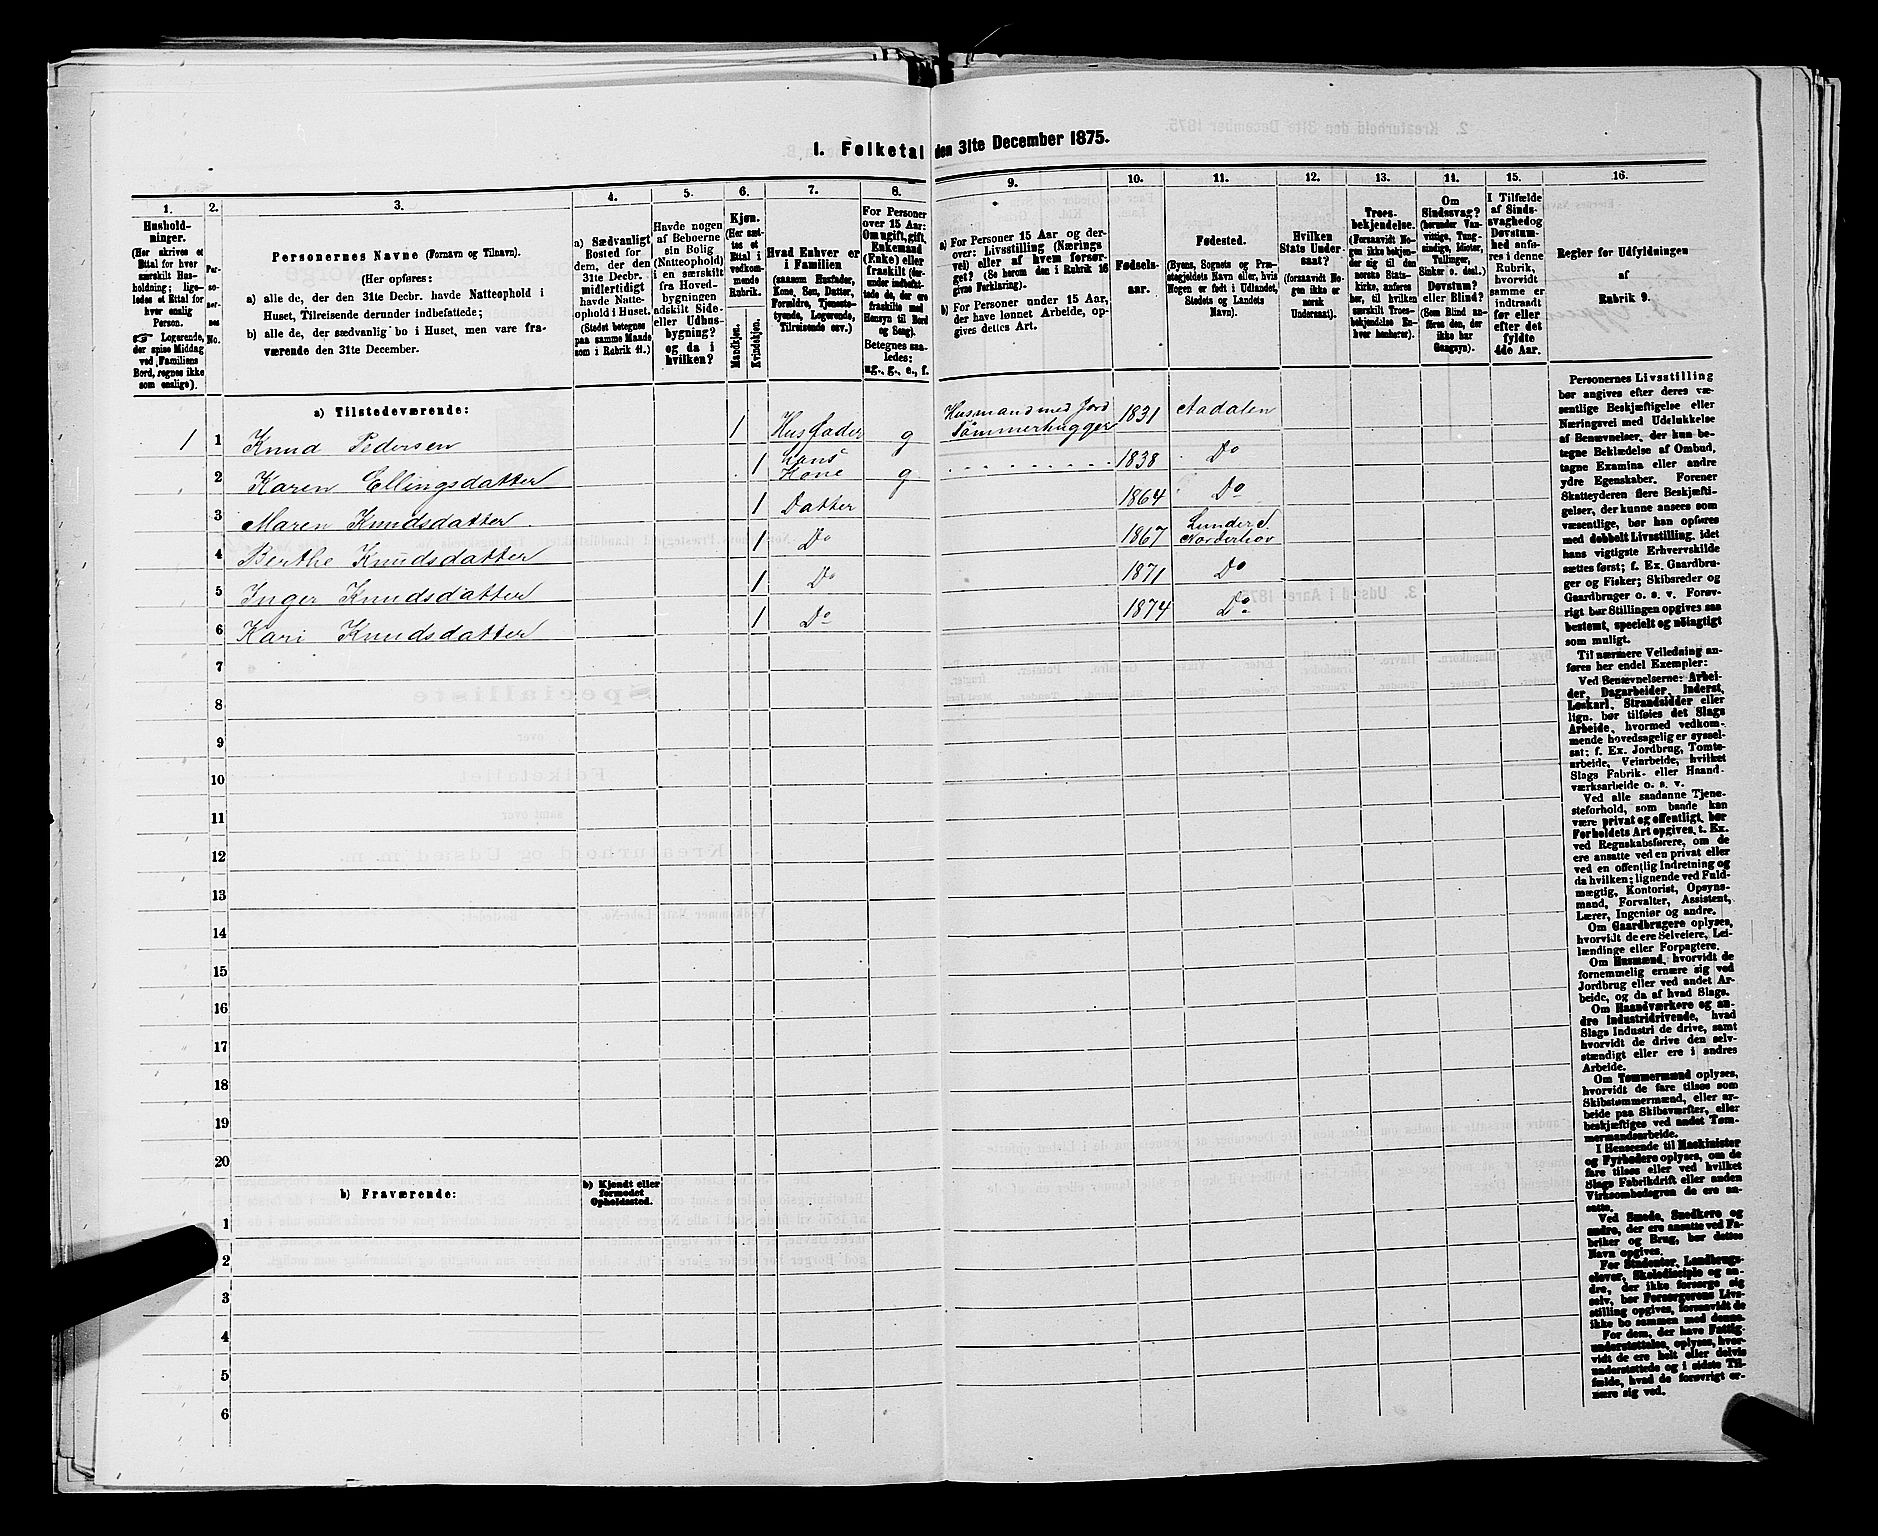 I. Folketal den 31te December 1875.
1.
Hushold-
ninger.
(Her skrives et
Ettal for hver
særskilt Hus-
holdning; lige-
ledes et Ettal for
hver enslig
Person.
Logerende,
der spise Middag
ved Familiens
Bord, regnes ikke
som enslige).
2.
Per-
so-
ner-
nes
No.
3.
Personernes Navne (Fornavn og Tilnavn).
(Her opføres:
a) alle de, der den 31te Decbr. havde Natteophold i
Huset, Tilreisende derunder indbefattede;
b) alle de, der sædvanlig bo i Huset, men vare fra-
værende den 31te December.
4.
a) Sædvanligt
Bosted for
dem, der den
31te Decbr.
midlertidigt
havde Natte-
ophold i Huset.
(Stedet betegnes
paa samme Maade
som i Rubrik 11.)
5.
Havde nogen
af Beboerne
sin Bolig
(Natteophold)
i en særskilt
fra Hoved-
bygningen
adskilt Side-
eller Udhus-
bygning?
og da i
hvilken?
6.
Kjøn.
(Her sæt-
tes et
Ettal i
vedkom-
mende
Rubrik.
Mandkjøn.
Kvindekjøn.
7.
Hvad Enhver er
i Familien
(saasom Husfader,
Kone, Søn, Datter,
Forældre, Tjeneste-
tyende, Logerende,
Tilreisende osv.)
8.
For Personer
over 15 Aar:
Om ugift, gift,
Enkemand
(Enke) eller
fraskilt (der-
under indbefat-
tede de, der ere
fraskilte med
Hensyn til Bord
og Seng).
Betegnes saa-
ledes:
ug., g., e., f.
9.
a) For Personer 15 Aar og der-
over: Livsstilling (Nærings
vei) eller af hvem forsør-
get? (Se herom den i Rubrik 16
givne Forklaring).
b) For Personer under 15 Aar,
der have lønnet Arbeide, op-
gives dettes Art.
10.
Fødsels-
aar.
11.
Fødested.
(Byens, Sognets og Præ-
stegjeldets Navn eller, hvis
Nogen er født i Udlandet,
Stedets og Landets
Navn).
12.
Hvilken
Stats Under-
saat?
(forsaavidt No-
gen ikke er
norsk
Undersaat).
13.
Troes-
bekjendelse.
(Forsaavidt No-
gen ikke bekjen-
der sig til den
norske Stats-
kirke, anføres
her, til hvilken
særskilt Troes-
bekjendelse En-
hver henhører).
14.
Om
Sindssvag?
(herunder Van-
vittige, Tung-
sindige, Idioter,
Tullinger,
Sinker o. desl.)
Døvstum?
eller Blind?
(Som Blind an-
føres den, der
ikke har
Gangsyn).
15.
I Tilfælde
af Sinds-
svaghed og
Døvstum-
hed anfø-
res i denne
Rubrik,
hvorvidt
samme er
indtraadt
før eller
efter det
fyldte
4de Aar.
16.
Regler for Udfyldningen
af
Rubrik 9.
a) Tilstedeværende:
1 1 Knud Pedersen 1 Husfader g Husmand med Jord Tømmerhugger 1831 Aadalen
2 Karen Ellingsdatter 1 hans Kone g 1838 Do
3 Maren Knudsdatter 1 Datter 1864 Do
4 Berthe Knudsdatter 1 Do 1867 Lunder S. Norderhov
5 Inger Knudsdatter 1 Do 1871 Do
6 Kari Knudsdatter 1 Do 1874 Do
7
8
9
10
11
12
13
14
15
16
17
18
19
20
b) Fraværende:
b) Kjendt eller
formodet
Opholdssted.
1
2
3
4
5
6
Personernes Livsstilling
bør angives efter deres væ-
sentlige Beskjæftigelse eller
Næringsvei med Udelukkelse
af Benævnelser, der kun be-
tegne Beklædelse af Ombud,
tagne Examina eller andre
ydre Egenskaber. Forener
Skatteyderen flere Beskjæfti-
gelser, der kunne ansees som
væsentlige, bør han opføres
med dobbelt Livsstilling, idet
hans vigtigste Erhvervskilde
sættes først; f. Ex. Gaardbru-
ger og Fisker; Skibsreder og
Gaardbruger o. s. v. Forøv-
rigt bør Stillingen opgives saa
bestemt, specielt og nøiagtigt
som muligt.
Til nærmere Veiledning an-
føres her endel Exempler:
Ved Benævnelserne: Arbei-
der, Dagarbeider, Inderst,
Løskarl, Strandsidder eller
lign. bør tilføies det Slags
Arbeide, hvormed vedkom-
mende hovedsagelig er syssel-
sat; f. Ex. Jordbrug, Tomte-
arbeide, Veiarbeide, hvilket
Slags Fabrik- eller Haand-
værksarbeide o. s. v.
Ved alle saadanne Tjene-
steforhold, som baade kan
være privat og offentligt, bør
Forholdets Art opgives, t. Ex.
ved Regnskabsførere, om de
ere ansatte ved en privat eller
ved en offentlig Indretning og
da hvilken; lignende ved Fuld-
mægtig, Kontorist, Opsyns-
mand, Forvalter, Assistent,
Lærer, Ingeniør og andre.
Om Gaardbrugere oplyses,
hvorvidt de ere Selveiere, Lei-
lændinge eller Forpagtere.
Om Husmænd, hvorvidt de
fornemmelig ernære sig ved
Jordbrug eller ved andet Ar-
beide, og da af hvad Slags.
Om Haandværkere og an-
dre Industridrivende, hvad
Slags Industri de drive, samt
hvorvidt de drive den selv-
stændigt eller ere i andres
Arbeide.
Om Tømmermænd oplyses,
hvorvidt de fare tilsøs som
Skibstømmermænd, eller ar-
beide paa Skibsværfter, eller
beskjæftiges ved andet Tøm-
mermandsarbeide.
I Henseende til Maskinister
og Fyrbødere oplyses, om de
fare tilsøs eller ved hvilket
Slags Fabrikdrift eller anden
Virksomhedsgren de ere an-
satte.
Ved Smede, Snedkere og
andre, der ere ansatte ved Fa-
briker og Brug, bør dettes
Navn opgives.
For Studenter, Landbrugs-
elever, Skoledisciple og an-
dre, der ikke forsørge sig
selv, bør Forsørgerens Livs-
stilling opgives, forsaavidt de
ikke bo sammen med denne.
For dem, der have Fattig-
understøttelse, oplyses, hvor-
vidt de ere helt eller delvis
understøttede og i sidste Til-
fælde, hvad de forøvrigt er-
nære sig ved.